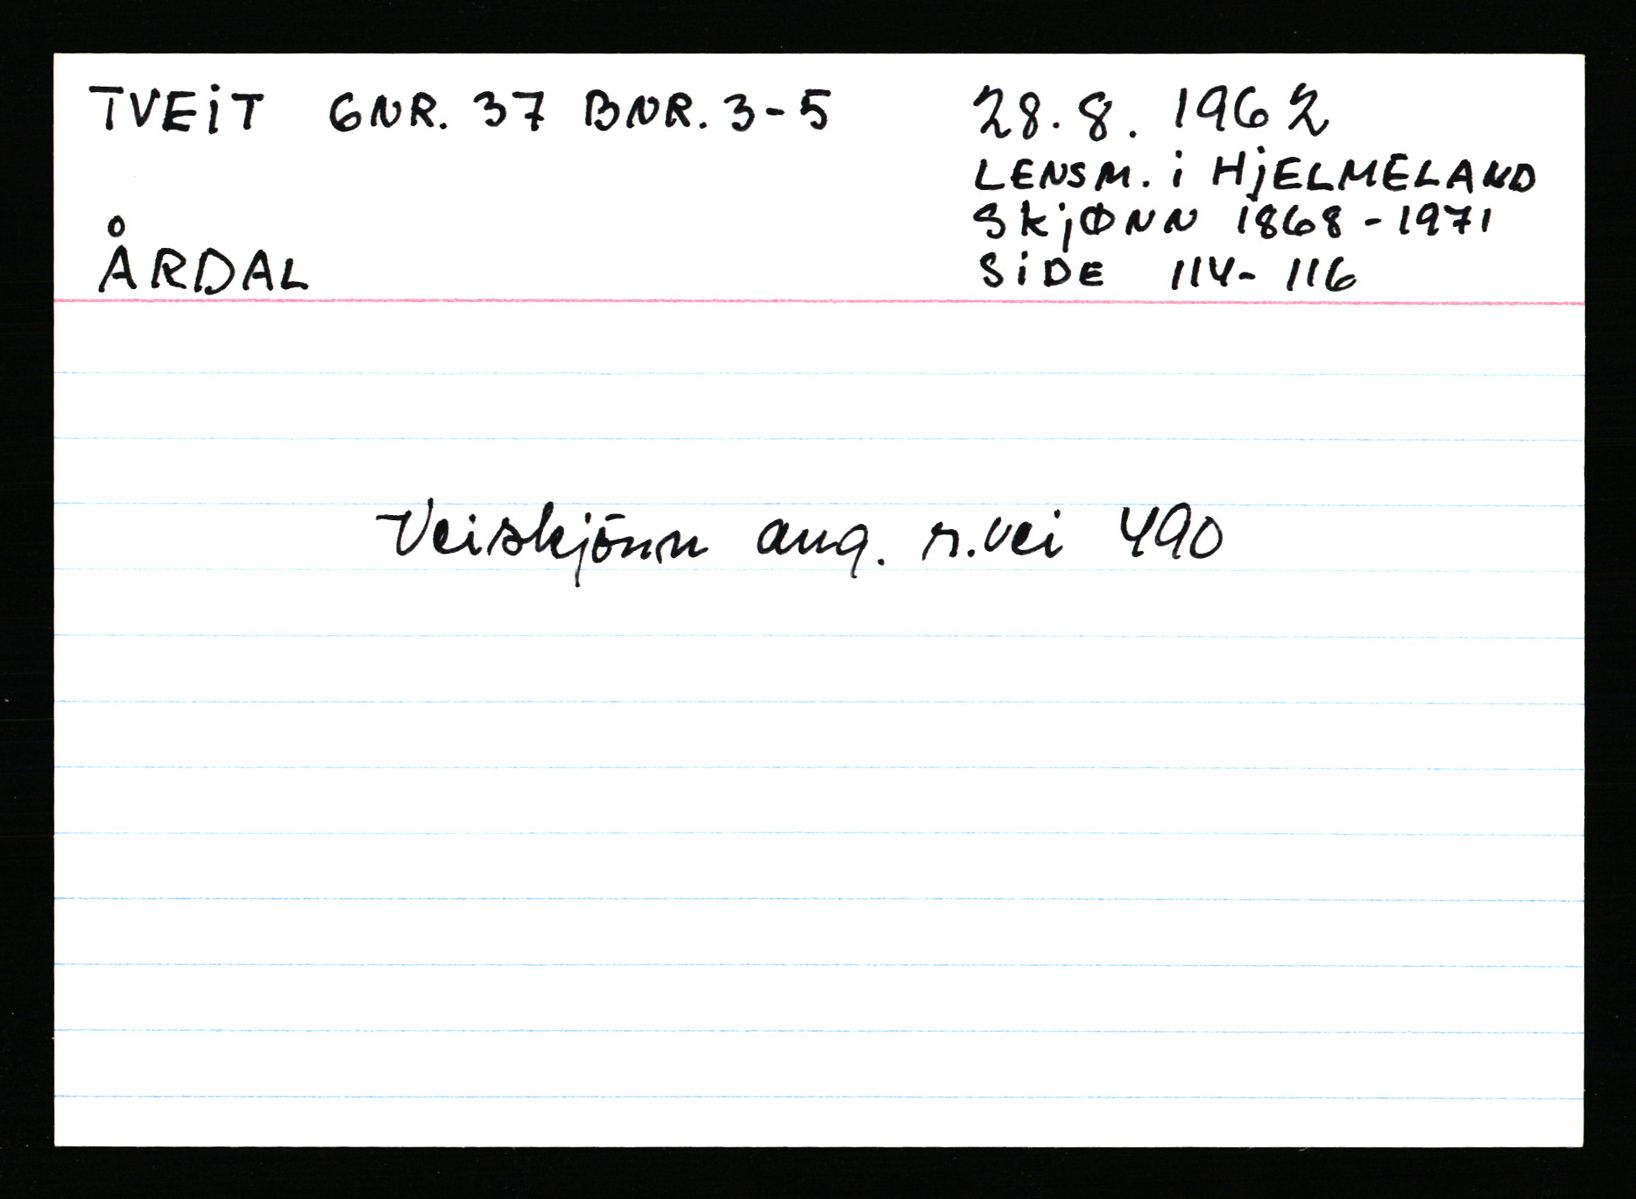 TVEIT GNR. 37 BNR. 3-5
ÅRDAL
28.8.1962
LENSM. i HJELMELAND
SKJØNN 1868-1971
SIDE 114-116
Veiskjönn ang. r.vei 490